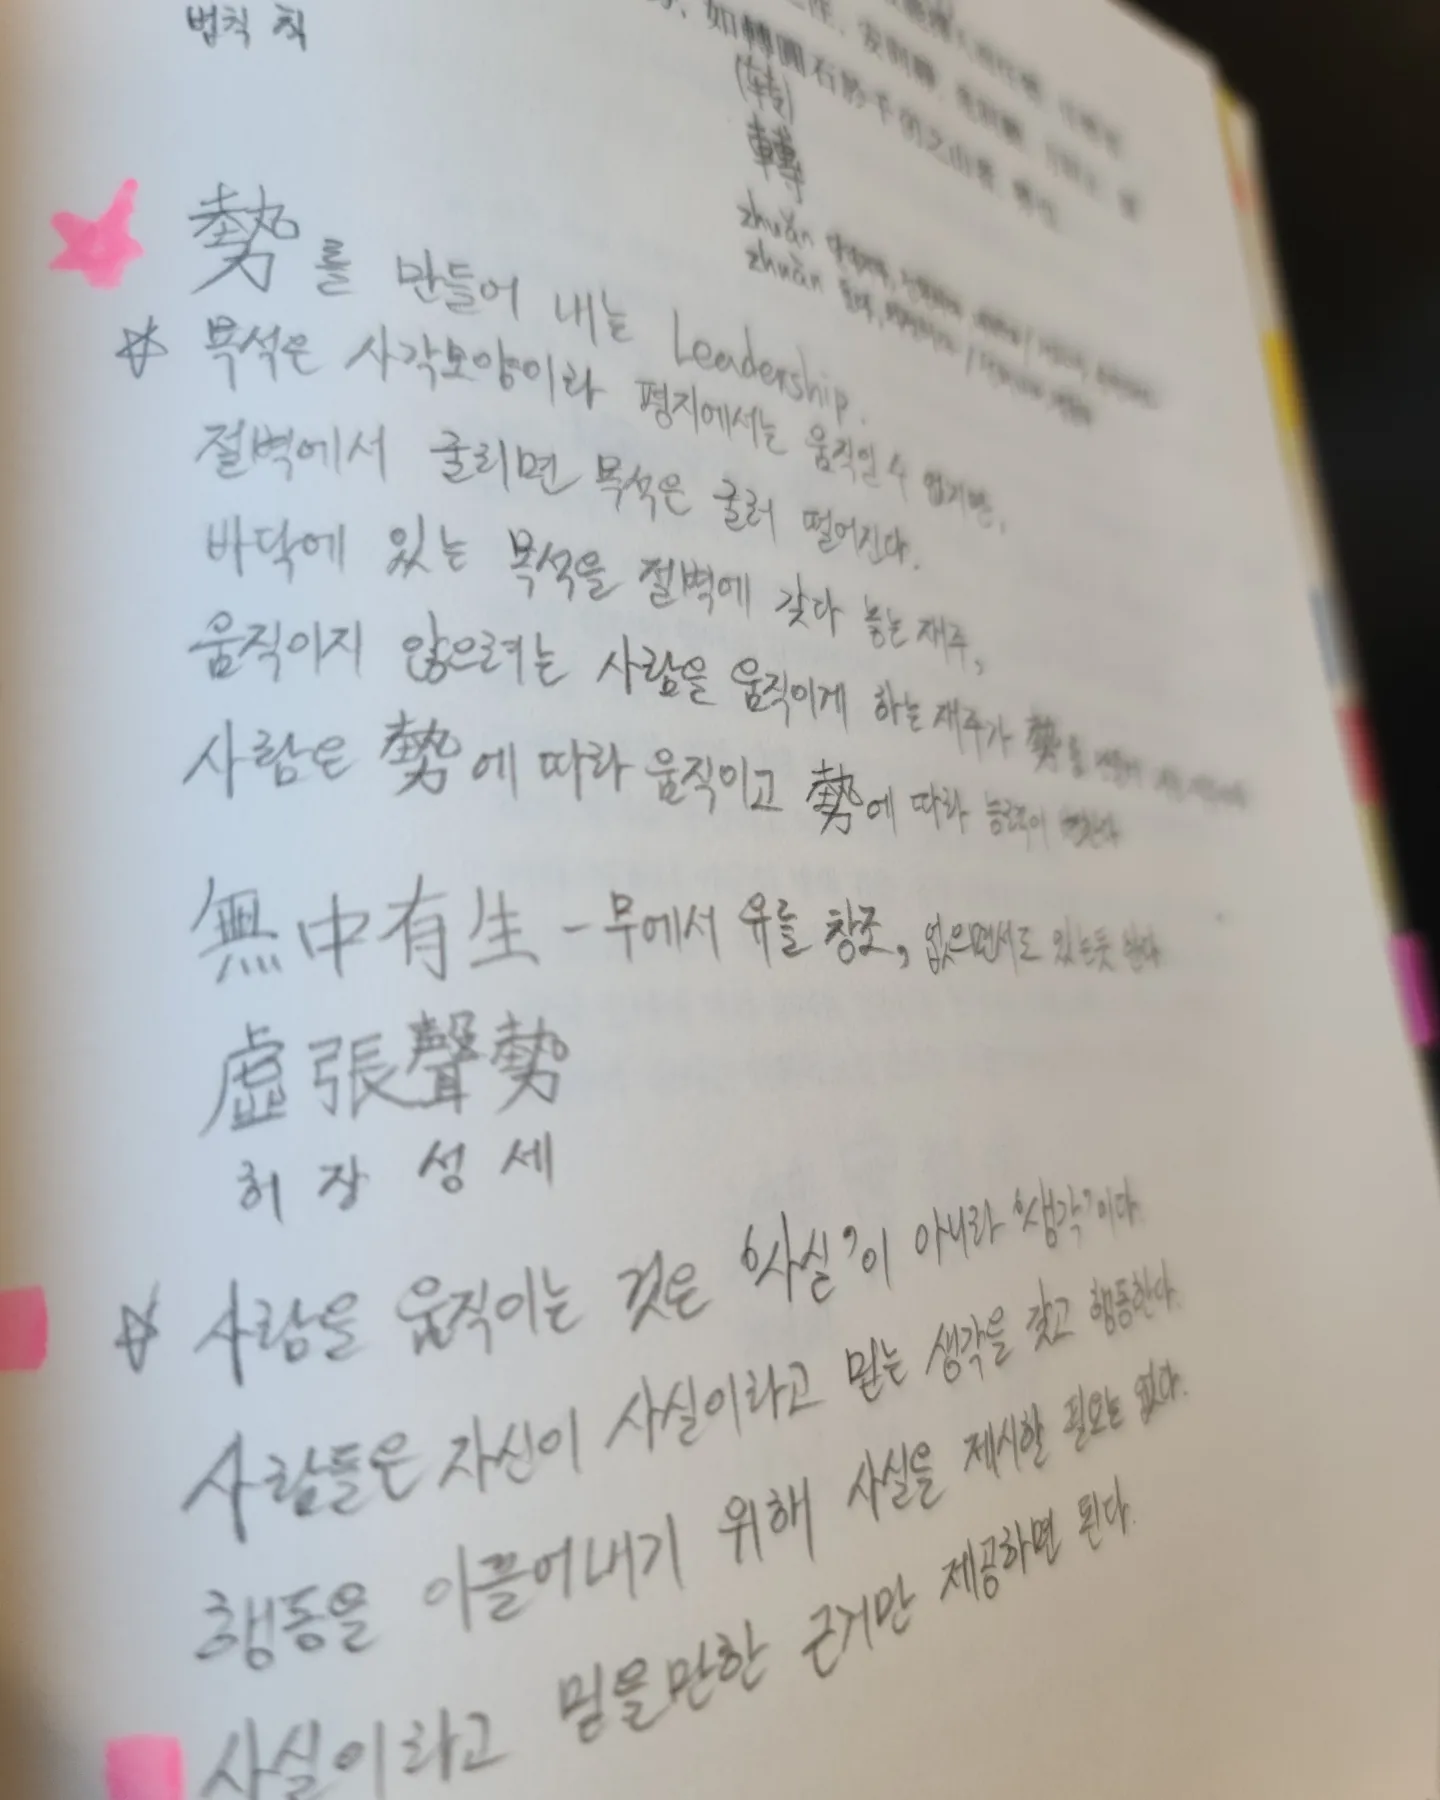 법칙 칙
如轉圓石於千仞之山者 勢也
(转)
轉
zhuǎn
zhuàn
勢를 만들어 내는 Leadership.
목석은 사각모양이라 평지에서는 움직일 수 없지만,
절벽에서 굴리면 목석은 굴러 떨어진다.
바닥에 있는 목석을 절벽에 갖다 놓는 재주,
움직이지 않으려는 사람을 움직이게 하는 재주가 勢를
사람은 勢에 따라 움직이고 勢에 따라 능력이 변한다
無中有生 - 무에서 유를 창조, 없으면서도 있는듯 한다
虛張聲勢
허 장 성 세
사람을 움직이는 것은 '사실'이 아니라 '생각'이다.
사람들은 자신이 사실이라고 믿는 생각을 갖고 행동한다.
행동을 이끌어내기 위해 사실을 제시할 필요는 없다.
사실이라고 믿을만한 근거만 제공하면 된다.